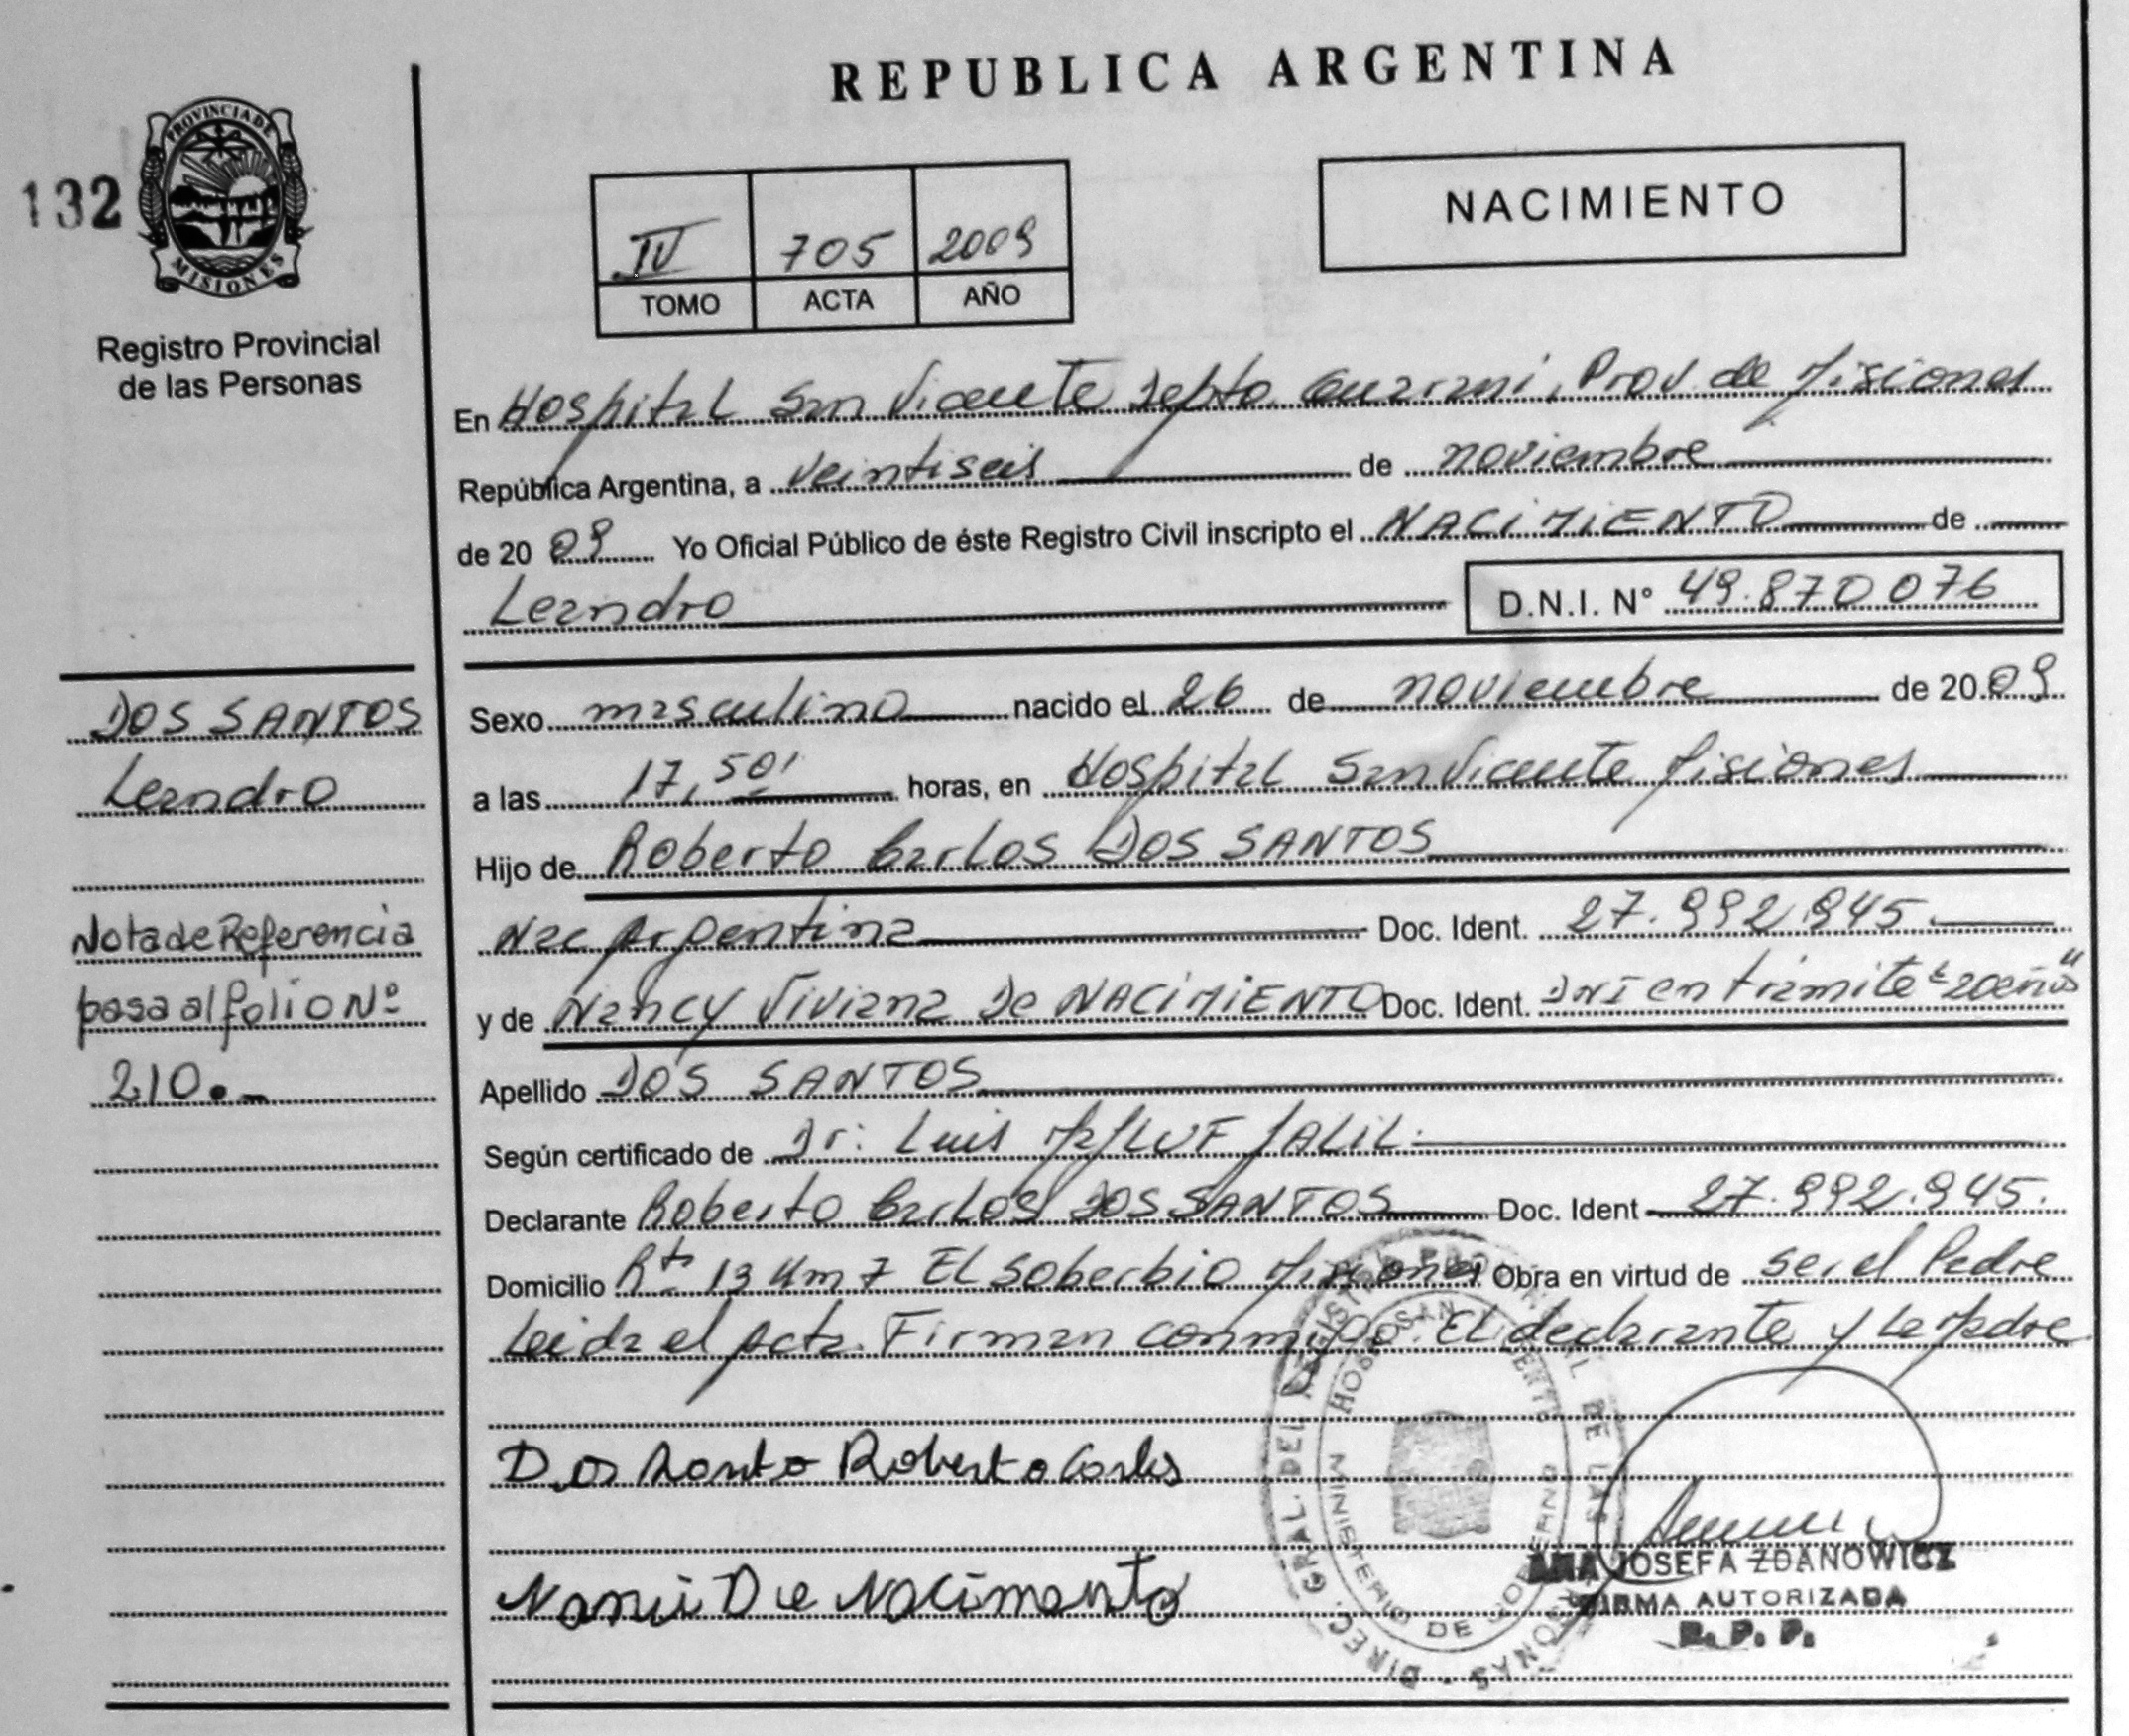 REPUBLICA ARGENTINA
PROVINCIA DE
MISIONES
132
Registro Provincial
de las Personas
IV 705 2009
TOMO ACTA AÑO
NACIMIENTO
En Hospital San Vicente Depto Guarani, Prov. de Misiones
República Argentina, a veintiseis de noviembre
de 20 09 Yo Oficial Público de éste Registro Civil inscripto el NACIMIENTO de
Leandro D.N.I. N° 49.870.076
DOS SANTOS
Leandro
Nota de Referencia
pasa al folio Nº
210.-
Sexo masculino nacido el 26 de noviembre de 20 09
a las 17,50' horas, en Hospital San Vicente Misiones
Hijo de Roberto Carlos DOS SANTOS
Nac Argentina Doc. Ident. 27.992.945.
y de Nancy Viviana De NACIMIENTO Doc. Ident. DNI en tramite "20 años"
Apellido DOS SANTOS
Según certificado de Dr: Luis JALIL.
Declarante Roberto Carlos DOS SANTOS Doc. Ident 27.992.945.
Domicilio Rta 13 Km 7 El Soberbio Misiones Obra en virtud de ser el Padre
Leida el Acta. Firman conmigo. El declarante y la Madre
Dos Santo Roberto Carlos
Nanci De Nacimento
DIREC. GRAL. DEL REGISTRO PROVINCIAL DE LAS PERSONAS
HOSP. SAN VICENTE
MINISTERIO DE GOBIERNO
ANA JOSEFA ZDANOWICZ
FIRMA AUTORIZADA
R. P. P.